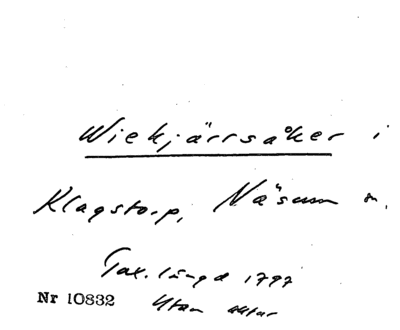 Wiekjärrsåker i
Klagstorp, Näsum sn.
Tax. längd 1797
Nr 10832 Utan aktar